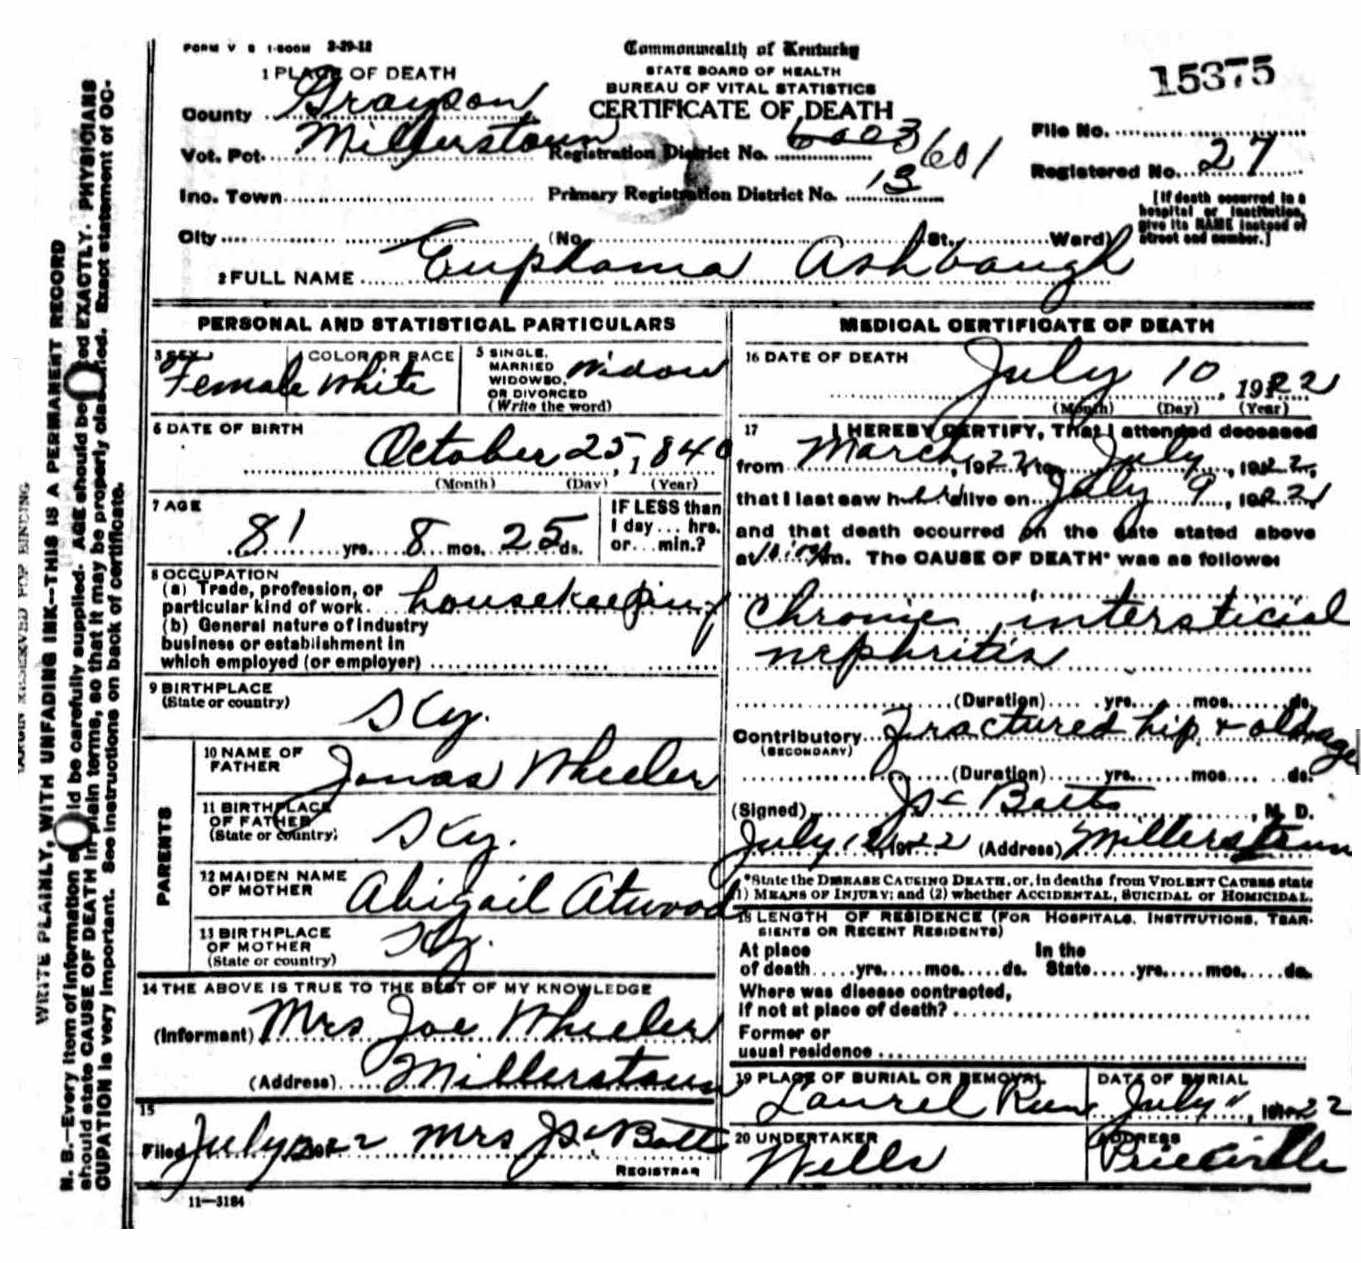 FORM V S 1-500M 3-29-12
Commonwealth of Kentucky
STATE BOARD OF HEALTH
BUREAU OF VITAL STATISTICS
CERTIFICATE OF DEATH
15375
1 PLACE OF DEATH
County Grayson
Vot. Pct. Millerstown
Registration District No. 6003 601
File No.
Registered No. 27
Inc. Town
Primary Registration District No. 13
[If death occurred in a
hospital or institution,
give its NAME instead of
street and number.]
City (No. St. Ward)
2 FULL NAME Euphama Ashbaugh
PERSONAL AND STATISTICAL PARTICULARS
3 SEX Female
COLOR OR RACE White
5 SINGLE,
MARRIED
WIDOWED,
OR DIVORCED
(Write the word)
Widow
6 DATE OF BIRTH
October 25, 1840
(Month) (Day) (Year)
7 AGE
81 yrs. 8 mos. 25 ds.
IF LESS than
1 day... hrs.
or...min.?
8 OCCUPATION
(a) Trade, profession, or
particular kind of work housekeeping
(b) General nature of industry
business or establishment in
which employed (or employer)
9 BIRTHPLACE
(State or country)
Ky.
PARENTS
10 NAME OF
FATHER
Jonas Wheeler
11 BIRTHPLACE
OF FATHER
(State or country)
Ky.
12 MAIDEN NAME
OF MOTHER
Abigail Atwood
13 BIRTHPLACE
OF MOTHER
(State or country)
Ky.
14 THE ABOVE IS TRUE TO THE BEST OF MY KNOWLEDGE
(Informant) Mrs Joe Wheeler
(Address) Millerstown
15
Filed July 22 Mrs Batts
REGISTRAR
11—3184
MEDICAL CERTIFICATE OF DEATH
16 DATE OF DEATH
July 10, 1922
(Month) (Day) (Year)
17 I HEREBY CERTIFY, That I attended deceased
from March, 1922, to July, 1922,
that I last saw her alive on July 9, 1922,
and that death occurred on the date stated above
at m. The CAUSE OF DEATH* was as follows:
Chronic intersticial
nephritis
(Duration) yrs. mos. ds.
Contributory Fractured hip + old age
(SECONDARY)
(Duration) yrs. mos. ds.
(Signed) Batts, M. D.
July 1922 (Address) Millerstown
*State the DISEASE CAUSING DEATH, or, in deaths from VIOLENT CAUSES state
1) MEANS OF INJURY; and (2) whether ACCIDENTAL, SUICIDAL or HOMICIDAL.
18 LENGTH OF RESIDENCE (FOR HOSPITALS, INSTITUTIONS, TRAN-
SIENTS OR RECENT RESIDENTS)
At place In the
of death yrs. mos. ds. State yrs. mos. ds.
Where was disease contracted,
if not at place of death?
Former or
usual residence
19 PLACE OF BURIAL OR REMOVAL
Laurel Run
DATE OF BURIAL
July 11, 1922
20 UNDERTAKER
Wells
ADDRESS
MARGIN RESERVED FOR BINDING
WRITE PLAINLY, WITH UNFADING INK--THIS IS A PERMANENT RECORD
N. B.—Every item of information should be carefully supplied. AGE should be stated EXACTLY. PHYSICIANS
should state CAUSE OF DEATH in plain terms, so that it may be properly classified. Exact statement of OC-
CUPATION is very important. See instructions on back of certificate.